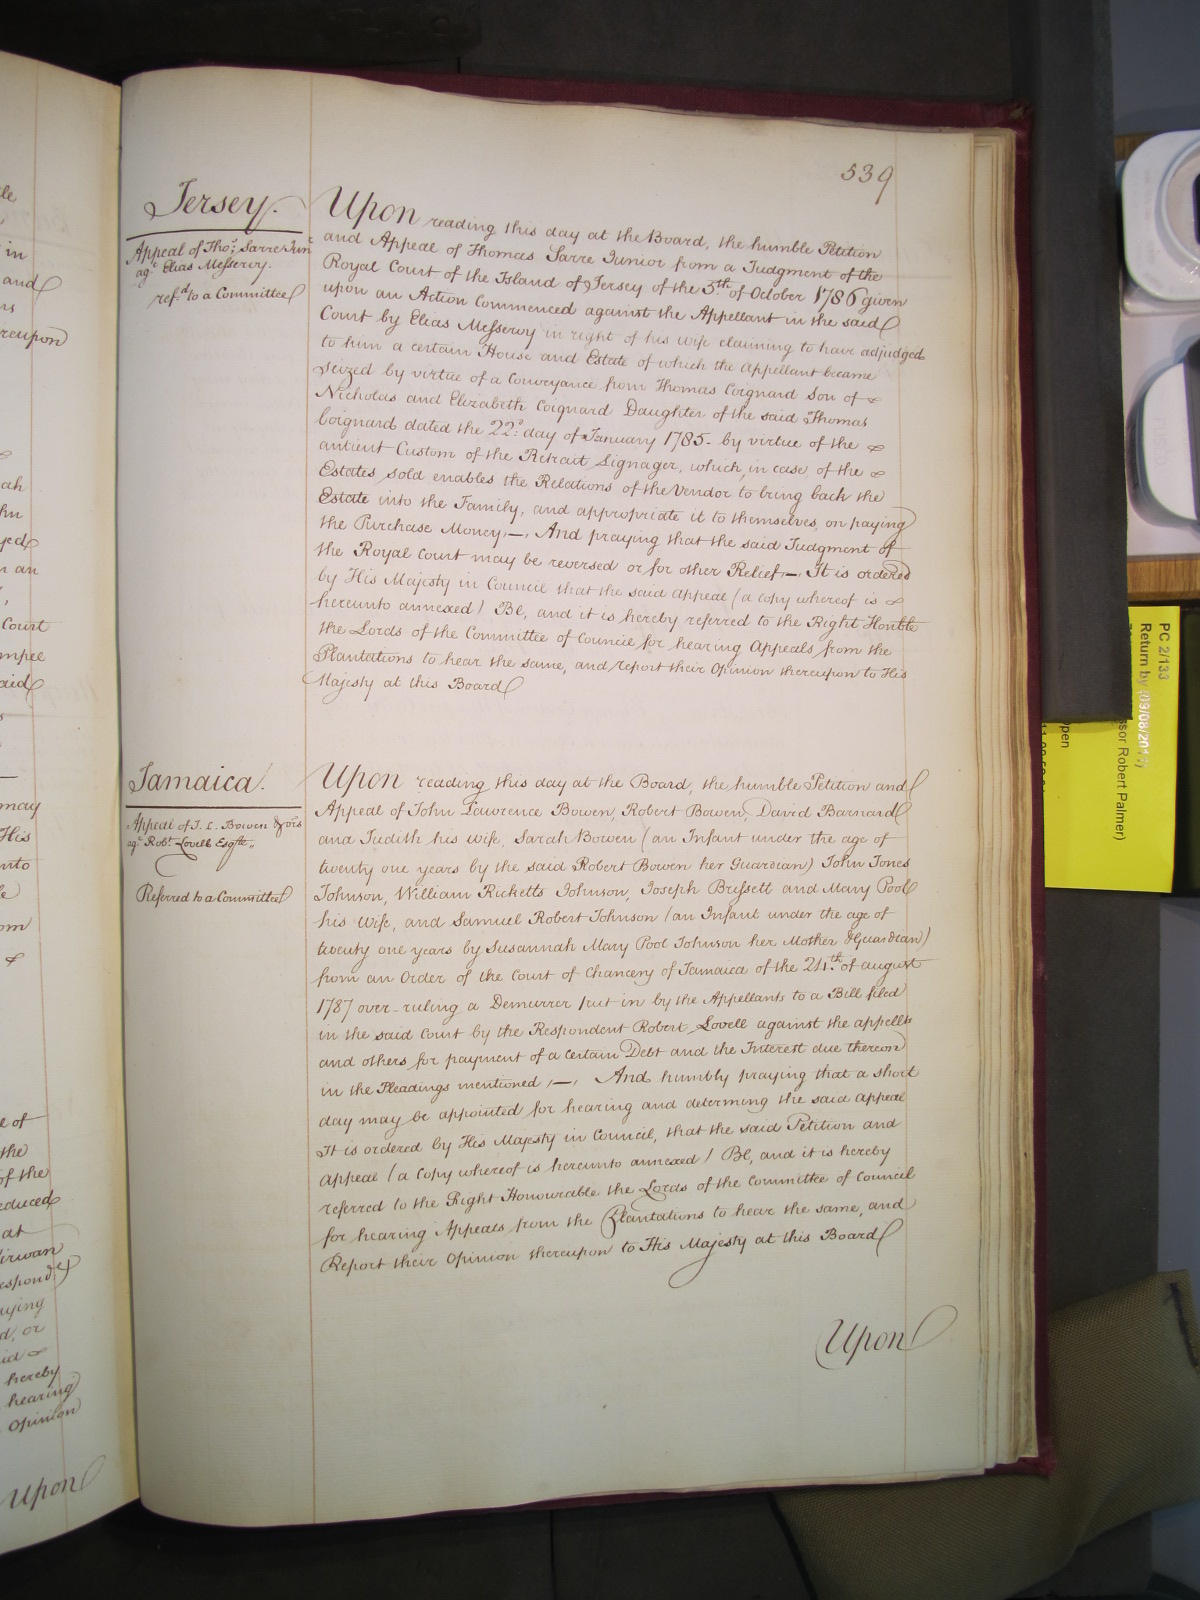 539
Jersey.
Appeal of Thos. Sarre Junr
agt. Elias Messervy.
refd. to a Committee
Upon reading this day at the Board, the humble Petition
and Appeal of Thomas Sarre Junior from a Judgment of the
Royal Court of the Island of Jersey of the 5th. of October 1786 given
upon an Action Commenced against the Appellant in the said
Court by Elias Messervy in right of his wife claiming to have adjudged
to him a certain House and Estate of which the Appellant became
seized by virtue of a Conveyance from Thomas Coignard Son of
Nicholas and Elizabeth Coignard Daughter of the said Thomas
Coignard dated the 22d. day of January 1785 - by virtue of the
antient Custom of the Retrait Lignager, which, in case of the
Estates sold enables the Relations of the Vendor to bring back the
Estate into the Family, and appropriate it to themselves, on paying
the Purchase Money, —, And praying that the said Judgment of
the Royal Court may be reversed or for other Relief, —, It is ordered
by His Majesty in Council that the said Appeal (a Copy whereof is
hereunto annexed) Be, and it is hereby referred to the Right Honble
the Lords of the Committee of Council for hearing Appeals from the
Plantations to hear the same, and report their Opinion thereupon to His
Majesty at this Board
Jamaica.
Appeal of J. L. Bowen & ors
agt. Robt. Lovell Esqr.
Referred to a Committee
Upon reading this day at the Board, the humble Petition and
Appeal of John Lawrence Bowen, Robert Bowen, David Barnard
and Judith his wife, Sarah Bowen (an Infant under the age of
twenty one years by the said Robert Bowen her Guardian) John Jones
Johnson, William Ricketts Johnson, Joseph Brissett and Mary Pool
his Wife, and Samuel Robert Johnson (an Infant under the age of
twenty one years by Susannah Mary Pool Johnson her Mother & Guardian)
from an Order of the Court of Chancery of Jamaica of the 24th. of August
1787 over-ruling a Demurrer put in by the Appellants to a Bill filed
in the said Court by the Respondent Robert Lovell against the appells
and others for payment of a Certain Debt and the Interest due thereon
in the Pleadings mentioned, —, And humbly praying that a short
day may be appointed for hearing and determing the said Appeal
It is ordered by His Majesty in Council, that the said Petition and
Appeal (a Copy whereof is hereunto annexed) Be, and it is hereby
referred to the Right Honourable the Lords of the Committee of Council
for hearing Appeals from the Plantations to hear the same, and
Report their Opinion thereupon to His Majesty at this Board
Upon
in
and
reupon
ah
Court
may
His
of the
educed
at
espondt.
aying
hereby
hearing
Opinion
Upon
PC 2/133
Return by (09/08/2011)
ssor Robert Palmer)
pen